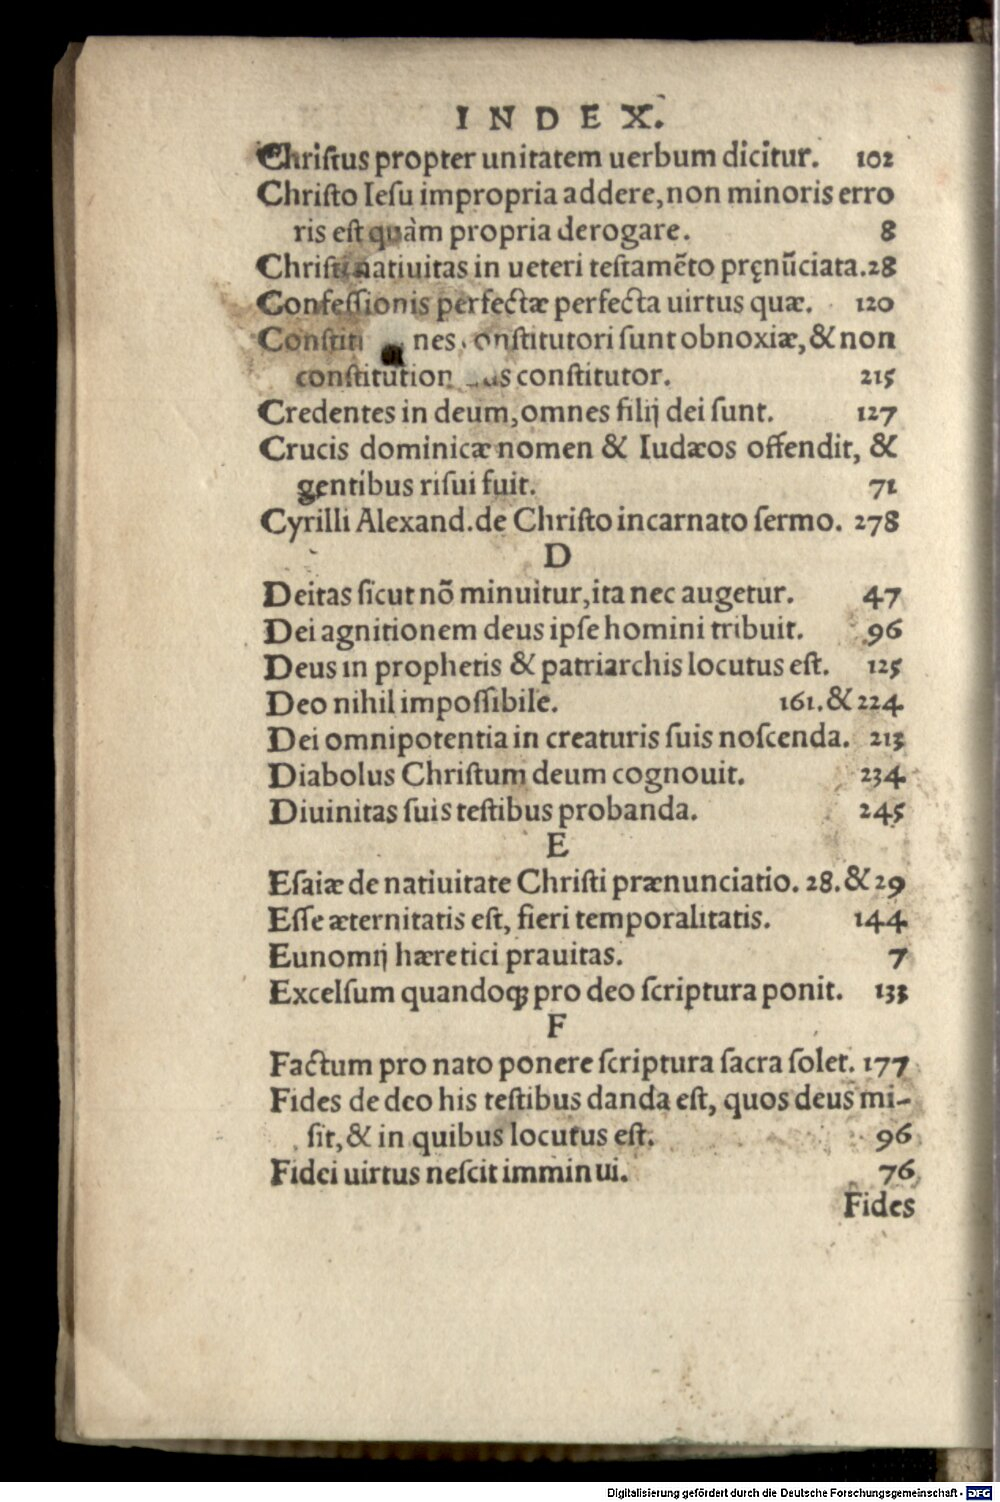 INDEX.
Chriſtus propter unitatem uerbum dicitur. 102
Chriſto Ieſu impropria addere, non minoris erro
ris eſt quàm propria derogare. 8
Chriſti natiuitas in ueteri teſtamẽto pręnũciata. 28
Confeſſionis perfectæ perfecta uirtus quæ. 120
onſtitutori ſunt obnoxiæ, & non
conſtitution us conſtitutor. 215
Credentes in deum, omnes filij dei ſunt. 127
Crucis dominicæ nomen & Iudæos offendit, &
gentibus riſui fuit. 71
Cyrilli Alexand. de Chriſto incarnato ſermo. 278
D
Deitas ſicut nõ minuitur, ita nec augetur. 47
Dei agnitionem deus ipſe homini tribuit. 96
Deus in prophetis & patriarchis locutus eſt. 125
Deo nihil impoſſibile. 161. & 224
Dei omnipotentia in creaturis ſuis noſcenda. 213
Diabolus Chriſtum deum cognouit. 234
Diuinitas ſuis teſtibus probanda. 245
E
Eſaiæ de natiuitate Chriſti prænunciatio. 28. & 29
Eſſe æternitatis eſt, fieri temporalitatis. 144
Eunomij hæretici prauitas. 7
Excelſum quandoq; pro deo ſcriptura ponit. 133
F
Factum pro nato ponere ſcriptura ſacra ſolet. 177
Fides de deo his teſtibus danda eſt, quos deus mi-
ſit, & in quibus locutus eſt. 96
Fidei uirtus neſcit imminui. 76
Fides
Digitalisierung gefördert durch die Deutsche Forschungsgemeinschaft - DFG